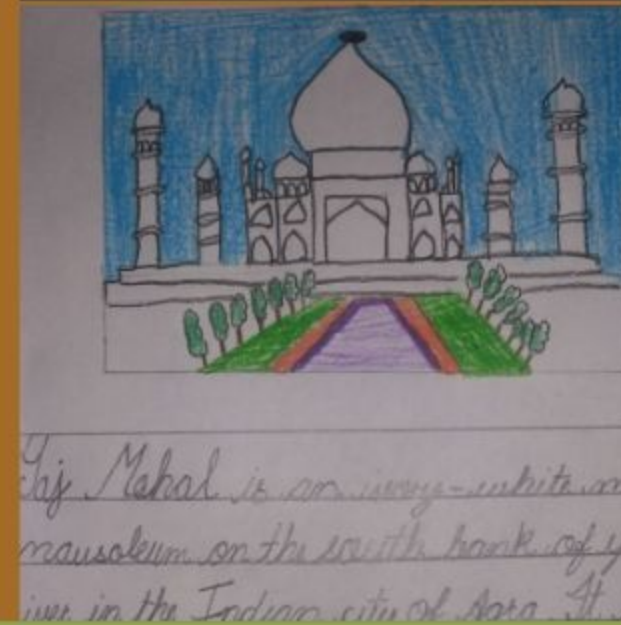 Taj Mahal is an ivory-white m
mausoleum on the south bank of y
iver in the Indian city of Agra. It